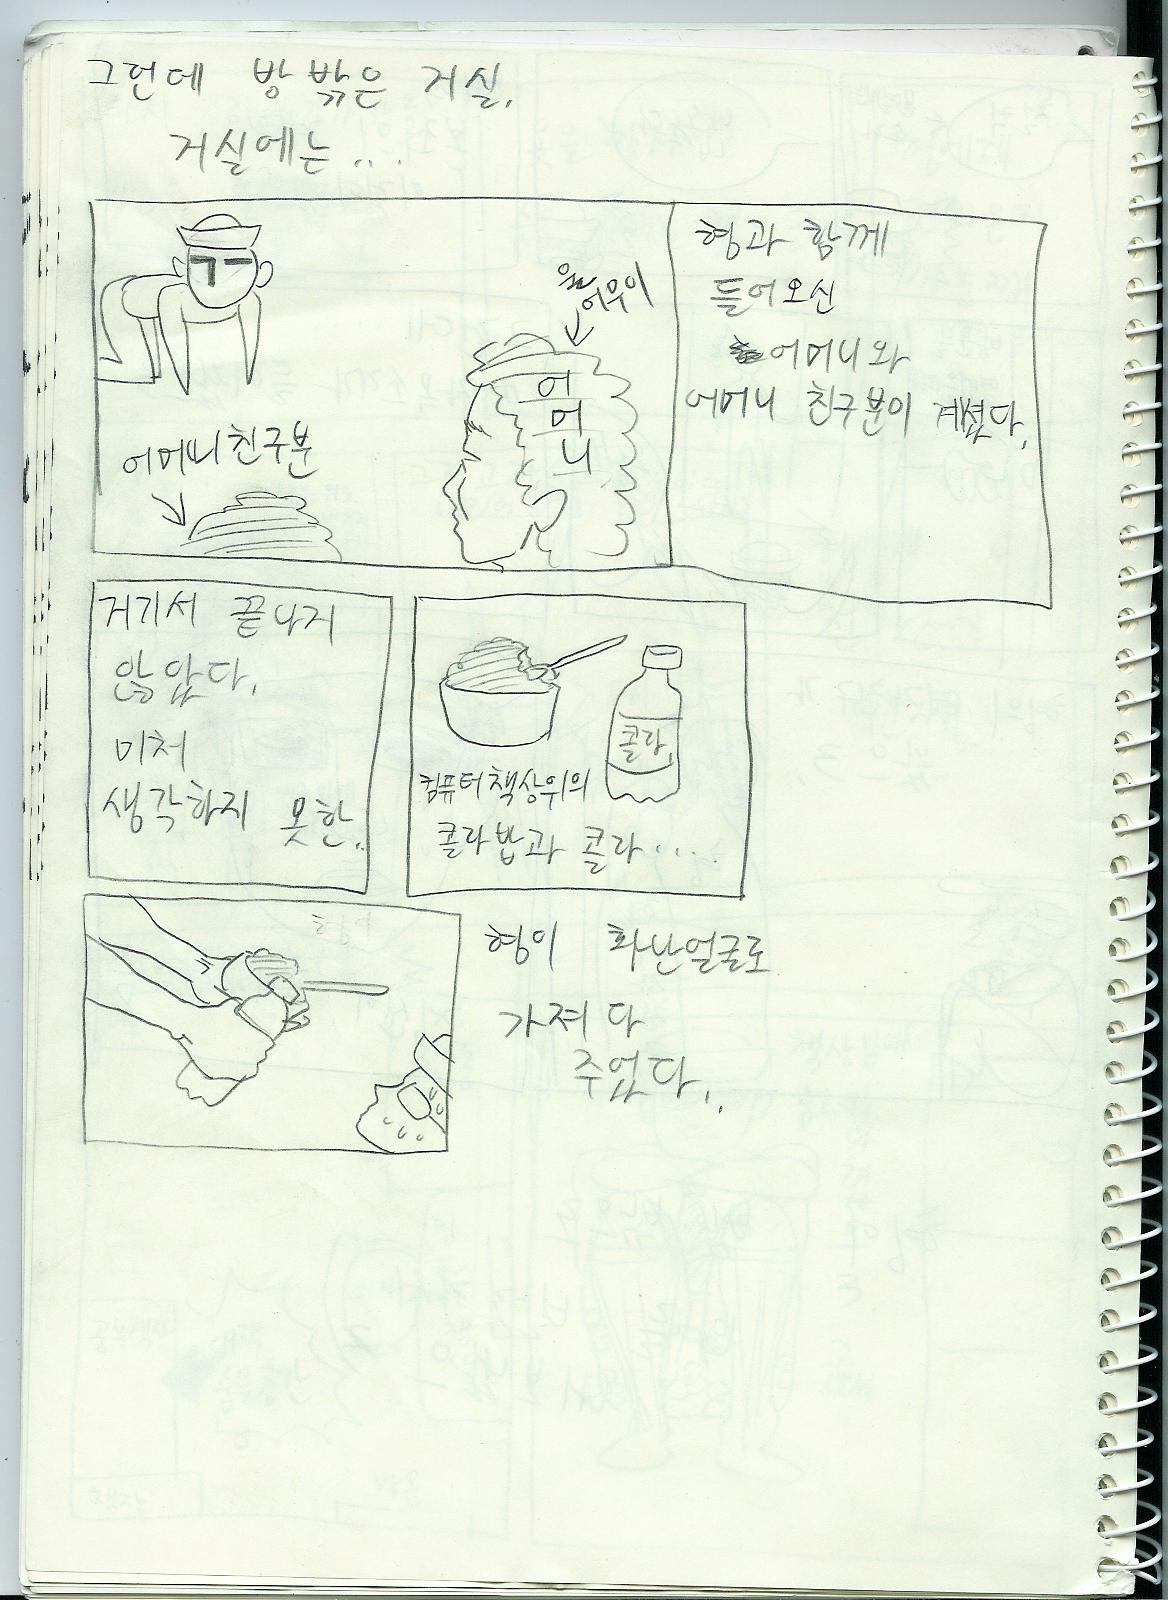 그런데 방 밖은 거실.
거실에는...
어우이
어
머
니
어머니친구분
형과 함께
들어오신
어머니와
어머니 친구분이 계셨다.
거기서 끝나지
않았다.
미처
생각하지 못한..
콜라
컴퓨터책상위의
콜라밥과 콜라....
형이 화난얼굴로
가져다
주었다..